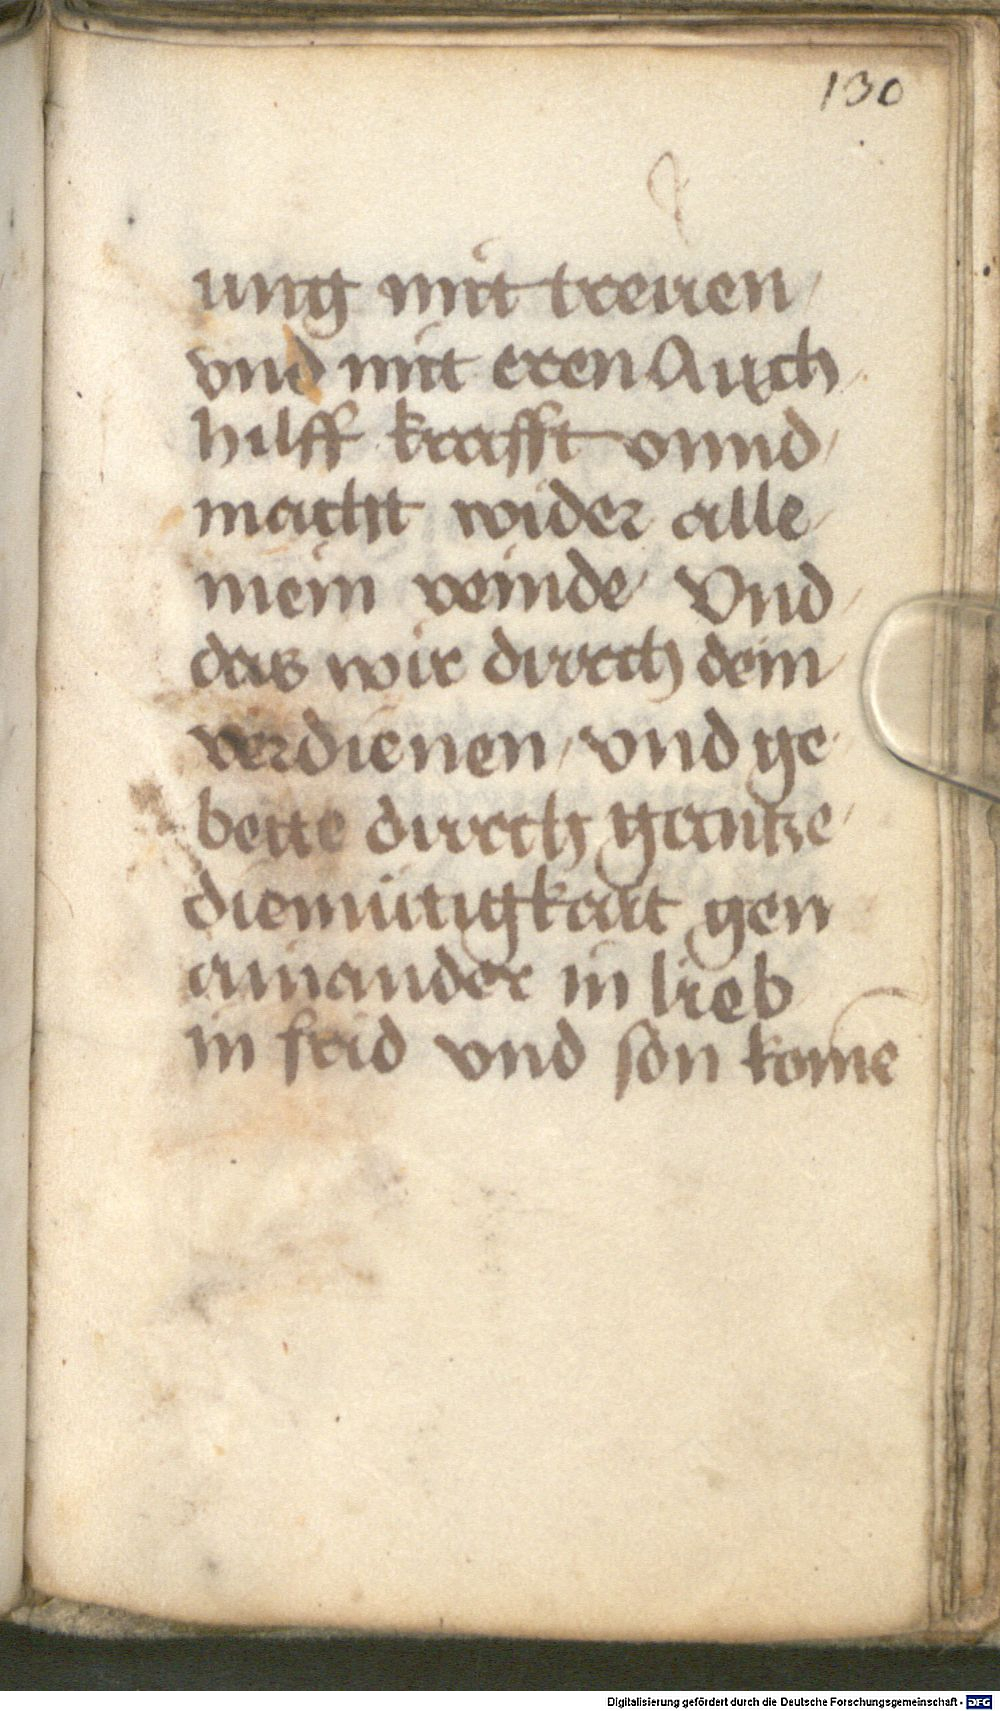 130
ung mit treuen
vnd mit eren Auch
hilff krafft vnnd
macht wider alle
mein veinde Vnd
das wir durch dein
verdienen vnd ge
bette durch gantze
diemütigkait gen
ainander in lieb
in frid vnd son kome
Digitalisierung gefördert durch die Deutsche Forschungsgemeinschaft - DFG